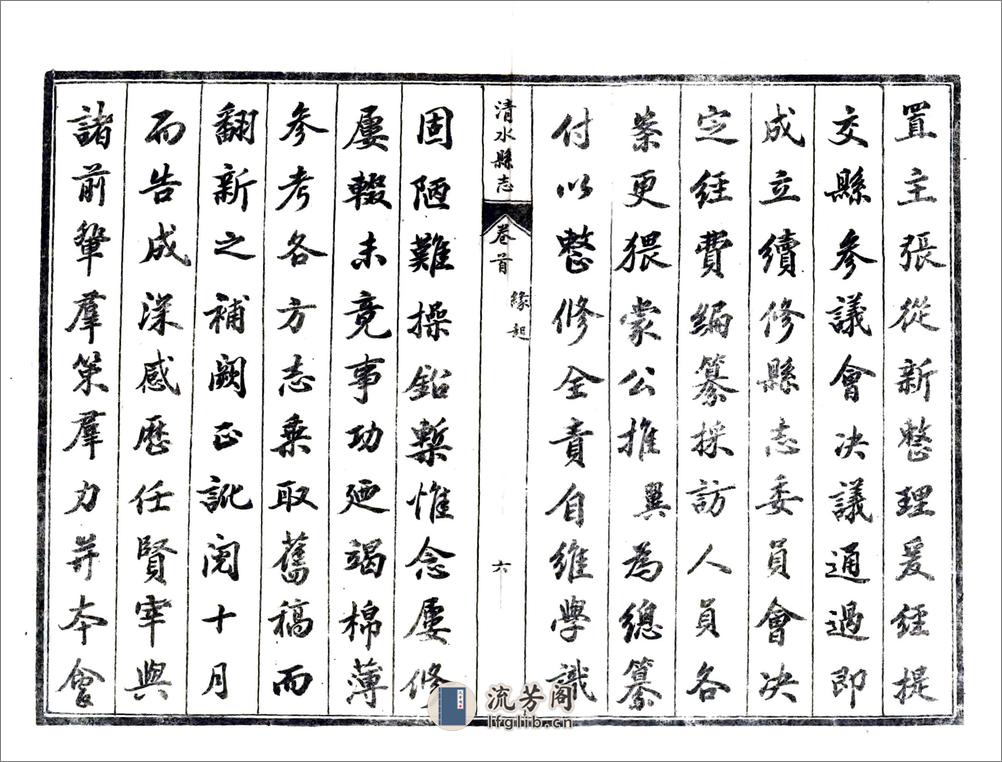 置主張從新整理爰經提
交縣參議會決議通過即
成立續修縣志委員會決
定經費編纂採訪人員各
案更猥蒙公推 翼為總纂
付以整修全責自維學識
清水縣志
卷首
緣起
六
固陋難操鉛槧惟念屢修
屢輟未竟事功廼竭棉薄
參考各方志乘取舊稿而
翻新之補闕正訛閱十月
而告成深感歷任賢宰與
諸前輩羣策羣力并本會
流芳阁
lfglib.cn